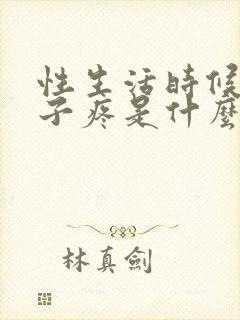 性生活時候
子疼是什麼
林真劍